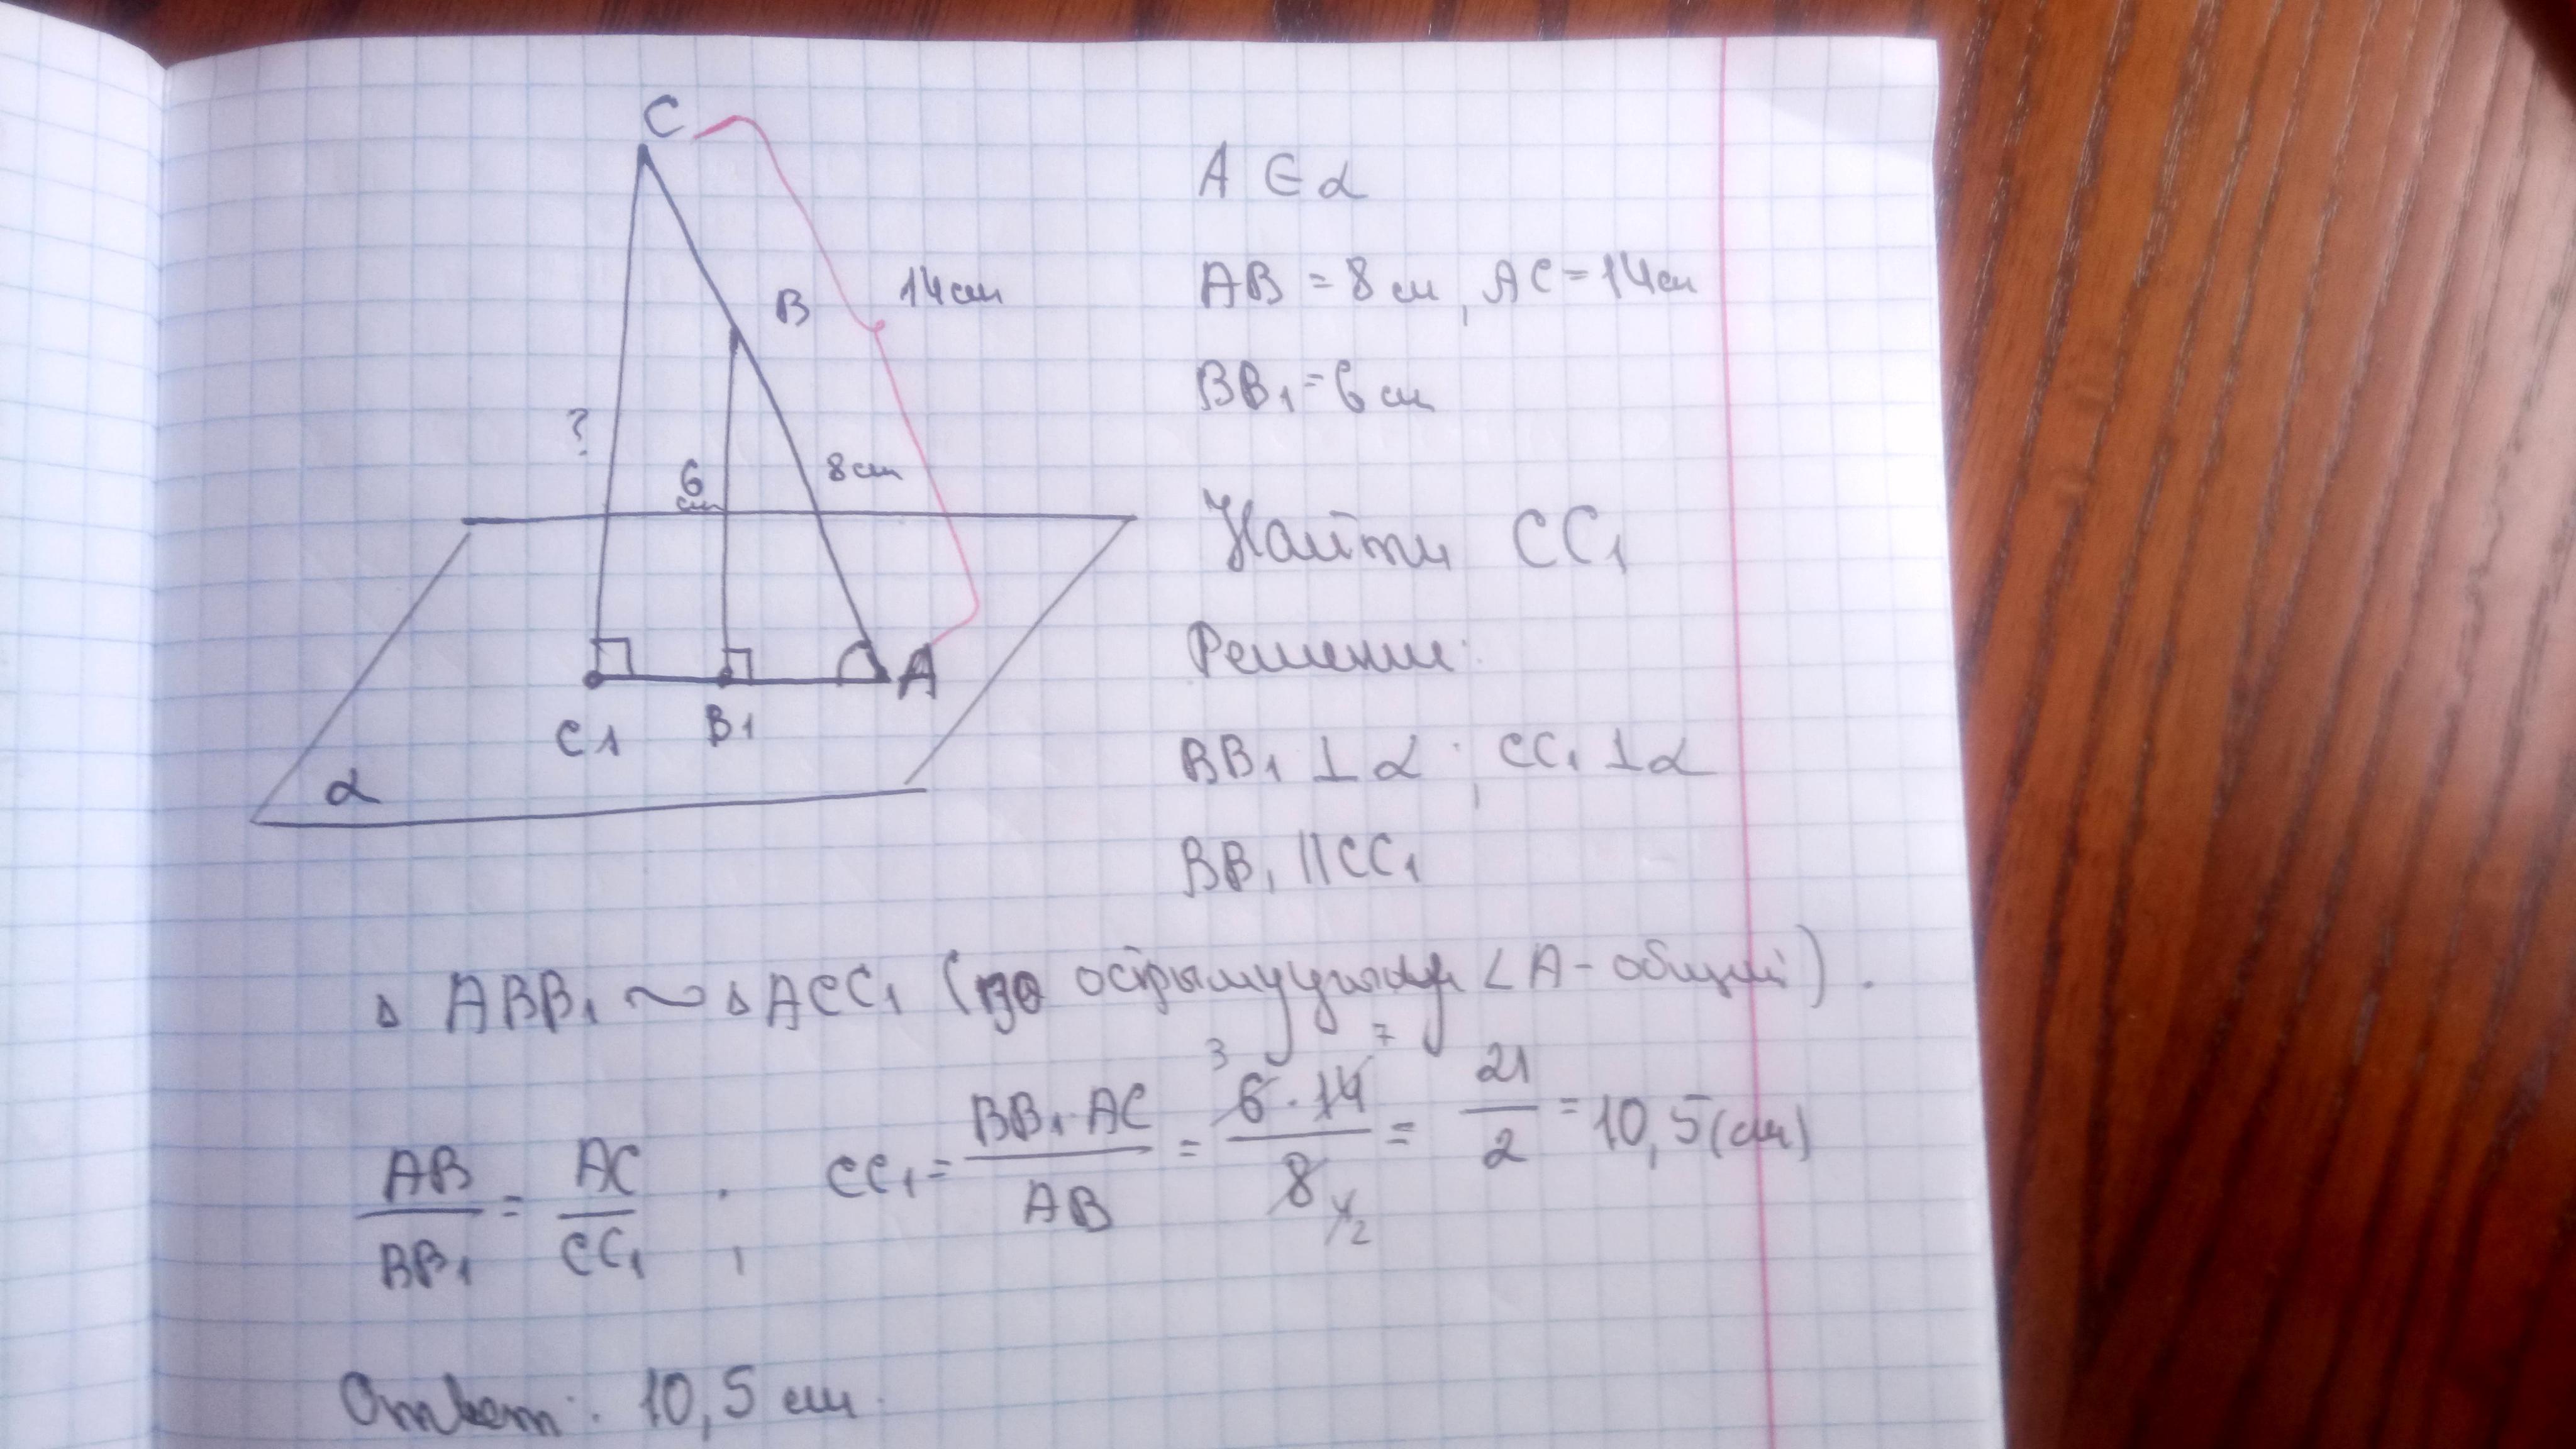 C
B
14см
?
6
см
8см
A
C1
B1
α
A ∈ α
AB = 8 см, AC = 14см
BB1 = 6 см
Найти CC1
Решение:
BB1 ⊥ α ; CC1 ⊥ α
BB1 || CC1
Δ ABB1 ~ Δ ACC1 (по острому углу ∠A - общий).
AB/BB1 = AC/CC1 ; CC1 = BB1·AC/AB = 6·14/8 = 21/2 = 10,5(см)
3 7
4 2
Ответ: 10,5 см.